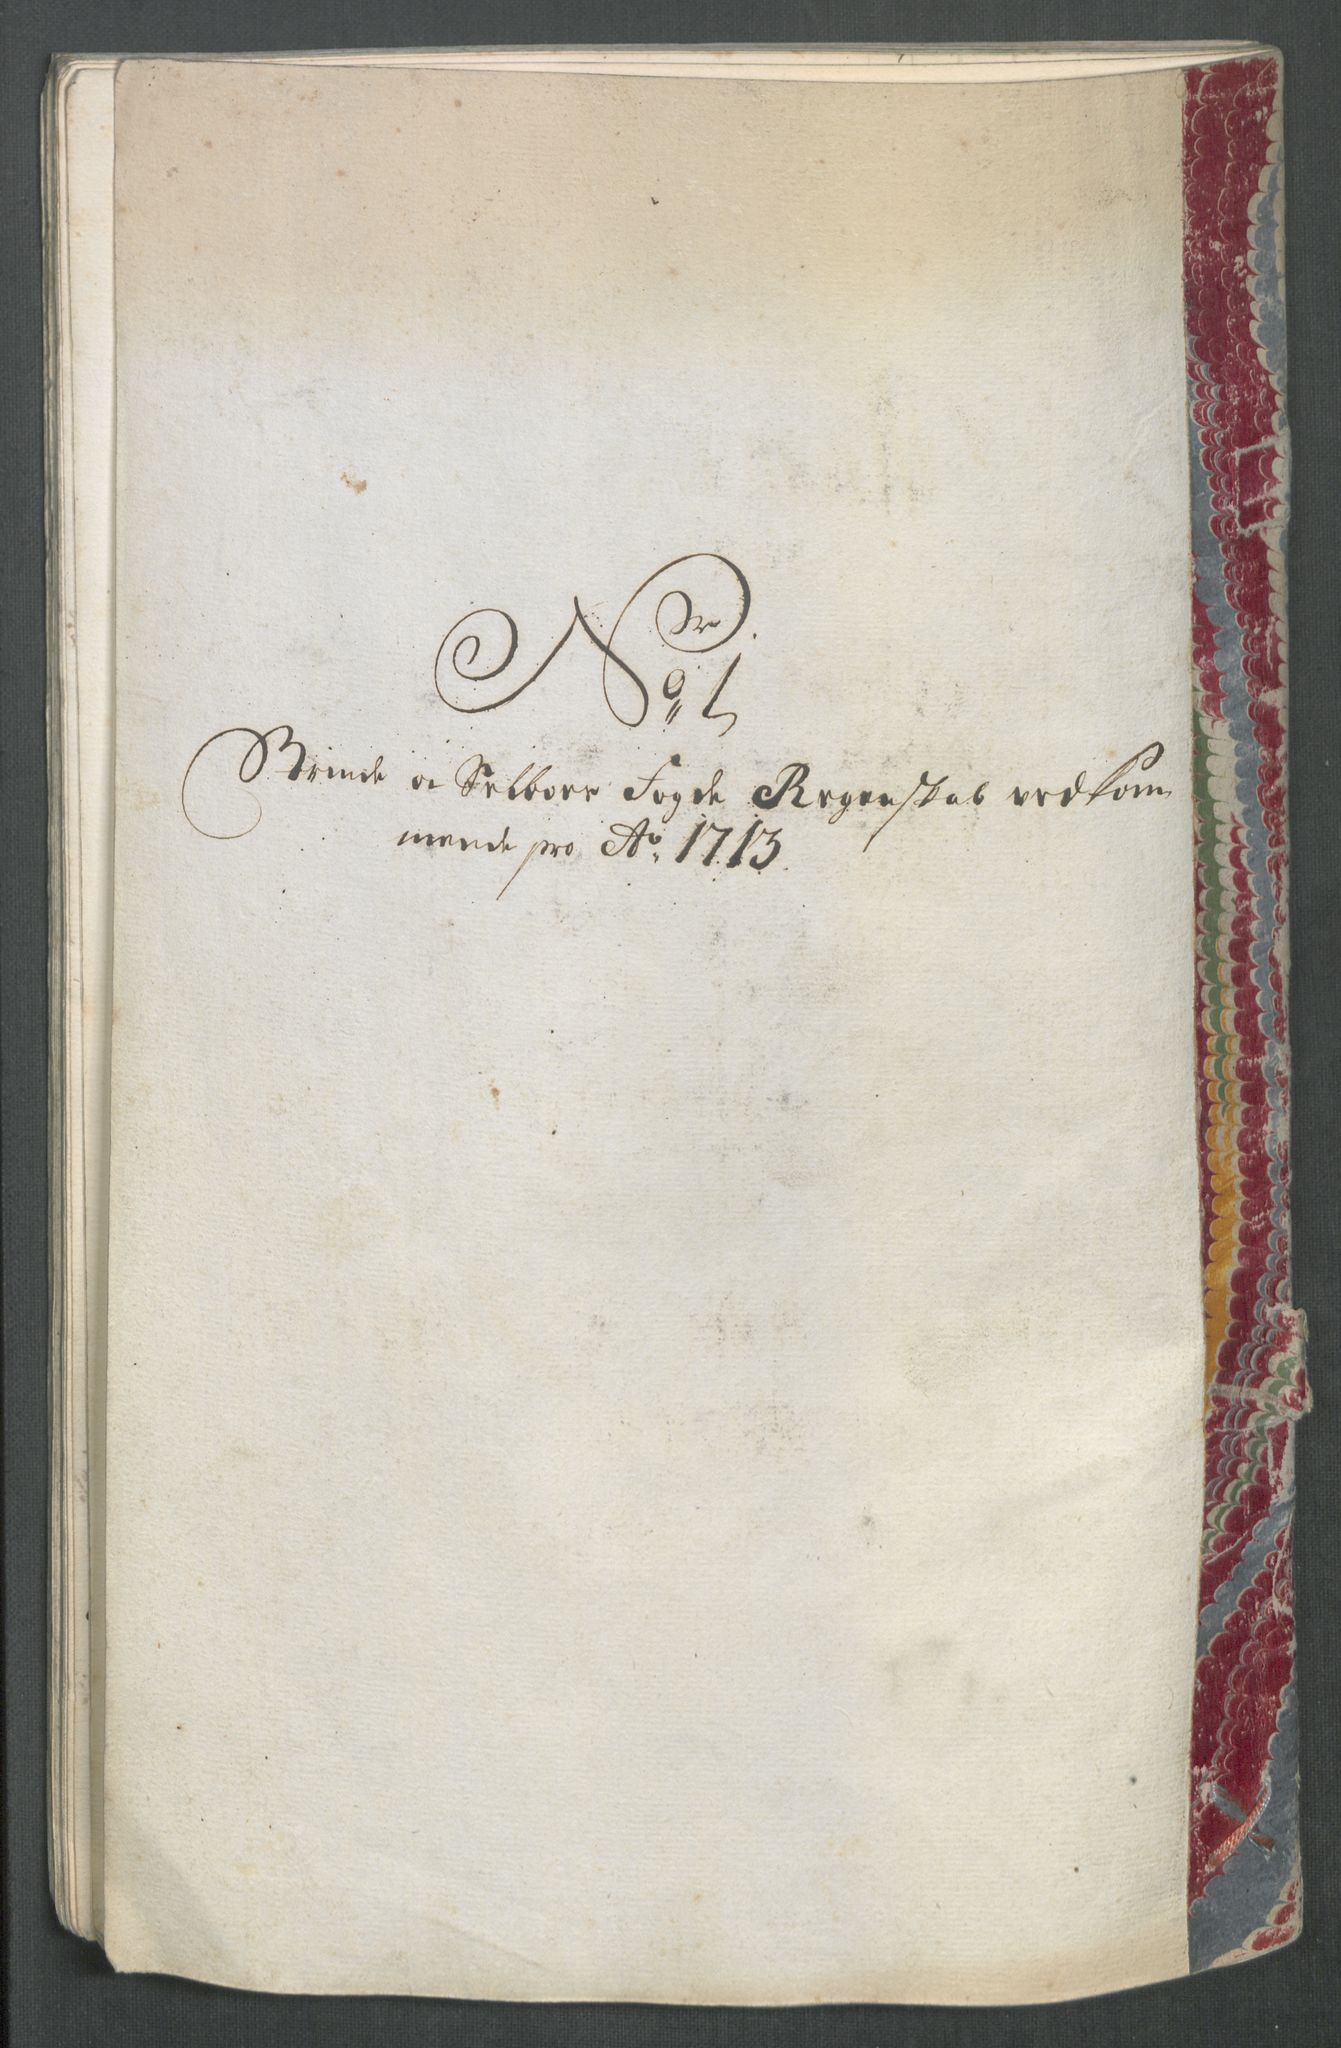 No 1
Strinde oc Selboes Fogde Regenskab vedkom
mende pro Ao 1713